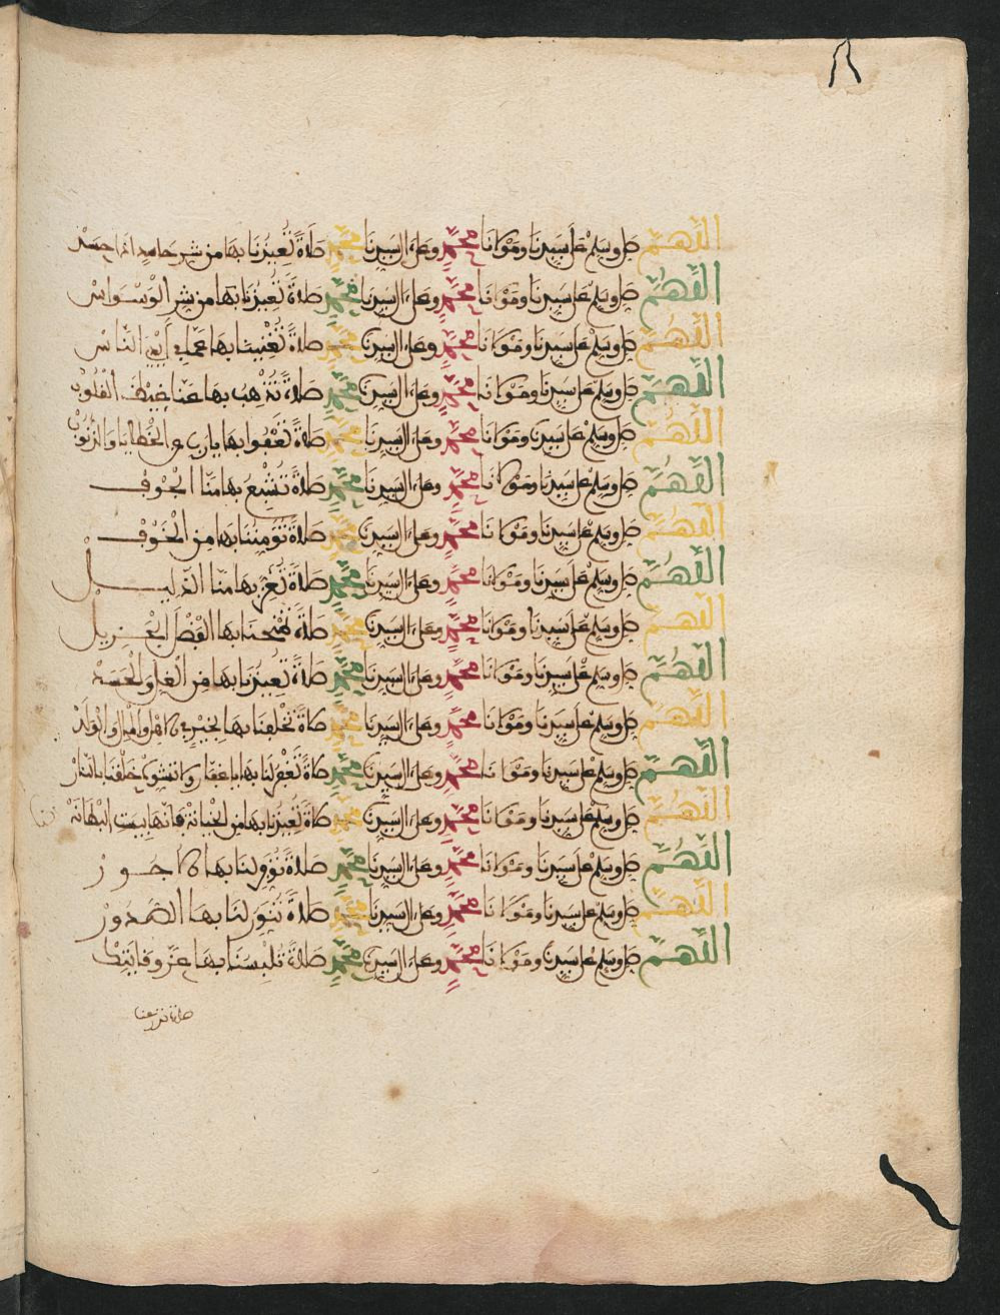 اللهم صل وسلم على سيدنا ومولانا محمد وعلى ءال سيدنا محمد صلاة تعيذنا بها من شر حاسد اذا حسد
اللهم صل وسلم على سيدنا ومولانا محمد وعلى ءال سيدنا محمد صلاة تعيذنا بها من شر الوسواس
اللهم صل وسلم على سيدنا ومولانا محمد وعلى ءال سيدنا محمد صلاة تغنينا بها عما في أيدي الناس
اللهم صل وسلم على سيدنا ومولانا محمد وعلى ءال سيدنا محمد صلاة تذهب بها عنا غيظ القلوب
اللهم صل وسلم على سيدنا ومولانا محمد وعلى ءال سيدنا محمد صلاة تعفوا بها يا رب عن الخطايا والذنوب
اللهم صل وسلم على سيدنا ومولانا محمد وعلى ءال سيدنا محمد صلاة تشبع بها منا الجوف
اللهم صل وسلم على سيدنا ومولانا محمد وعلى ءال سيدنا محمد صلاة تؤمننا بها من الخوف
اللهم صل وسلم على سيدنا ومولانا محمد وعلى ءال سيدنا محمد صلاة تعز بها منا الذليل
اللهم صل وسلم على سيدنا ومولانا محمد وعلى ءال سيدنا محمد صلاة تمنحنا بها الفضل الجزيل
اللهم صل وسلم على سيدنا ومولانا محمد وعلى ءال سيدنا محمد صلاة تعيذنا بها من الغل والحسد
اللهم صل وسلم على سيدنا ومولانا محمد وعلى ءال سيدنا محمد صلاة تخلفنا بها بخير في الاهل والمال والولد
اللهم صل وسلم على سيدنا ومولانا محمد وعلى ءال سيدنا محمد صلاة تغفر لنا بها يا غفار ولا تشوي خلقنا بالنار
اللهم صل وسلم على سيدنا ومولانا محمد وعلى ءال سيدنا محمد صلاة تعيذنا بها من الخيانة فانها بيست البطانة
اللهم صل وسلم على سيدنا ومولانا محمد وعلى ءال سيدنا محمد صلاة بها الاجور
اللهم صل وسلم على سيدنا ومولانا محمد وعلى ءال سيدنا محمد صلاة تنور لنا بها الصدور
اللهم صل وسلم على سيدنا ومولانا محمد وعلى ءال سيدنا محمد صلاة تلبسنا بها عز وقايتك
صلاة